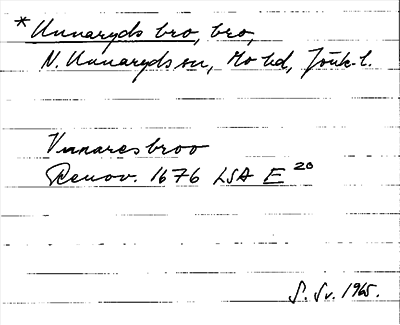 * Unnaryds bro, bro,
N. Unnaryds sn, Mo hd, Jönk. l.
Vnnaresbroo
Renov. 1676 LSA E 20
S. Sv. 1965.